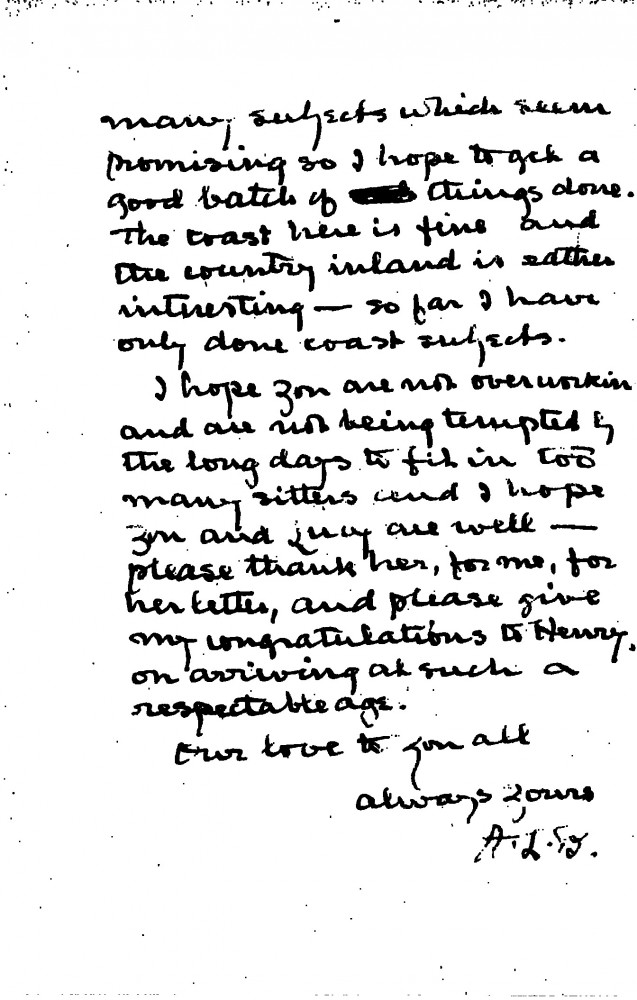 many subjects which seem
promising so I hope to get a
good batch of things done.
The coast here is fine and
the country inland is rather
interesting — so far I have
only done coast subjects.
I hope you are not overworkin
and are not being tempted by
the long days to fit in too
many sitters and I hope
you and Lucy are well —
please thank her, for me, for
her letter, and please give
my congratulations to Henry,
on arriving at such a
respectable age.
Our love to you all
always yours
A. L. B.